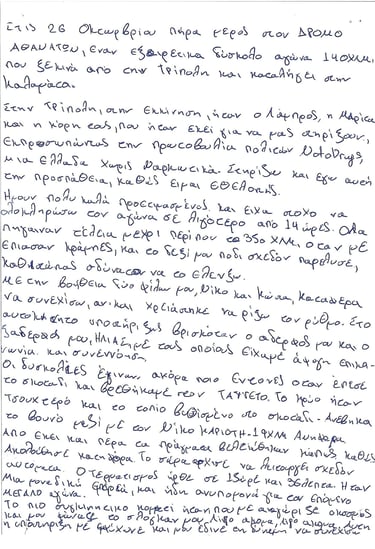 Στις 26 Οκτωβρίου πήρα μέρος στον ΔΡΟΜΟ
ΑΘΑΝΑΤΩΝ, έναν εξαιρετικά δύσκολο αγώνα 140ΧΛΜ
που ξεκινά από την Τρίπολη και καταλήγει στην
Καλαμάτα.
Στην Τρίπολη, στην Εκκίνηση, ήταν ο Λάμπρος, η Μαρίκα
και η κόρη τους, που ήταν εκεί για να μας στηρίξουν,
Εκπροσωπώντας την πρωτοβουλία πολιτών NotoDrugs,
μια Ελλάδα χωρίς Ναρκωτικά. Στηρίζω και εγώ αυτή
την προσπάθεια, καθώς είμαι ΕΘΕλοντής.
Ήμουν πολύ καλά προετοιμασμένος και είχα στόχο να
ολοκληρώσω τον αγώνα σε λιγότερο από 14 ώρες. Όλα
πήγαιναν τέλεια μέχρι περίπου το 35ο ΧΛΜ όταν με
έπιασαν κράμπες, και το δεξί μου πόδι σχεδόν παρέλυσε,
αδυνατώντας να το ελέγξω.
Με την βοήθεια δύο φίλων μου, Νίκο και Κώστα, κατάφερα
να συνεχίσω, αν και χρειάστηκε να ρίξω τον ρυθμό. Στο
αυτοκίνητο υποστήριξης βρισκόταν ο αδερφός μου και ο
ξάδερφός μου, με τους οποίους είχαμε άψογη επικοι-
νωνία και συνεννόηση.
Οι δυσκολίες έγιναν ακόμα πιο έντονες όταν έπεσε
το σκοτάδι και βρεθήκαμε στον ΤΑΥΓΕΤΟ. Το κρύο ήταν
τσουχτερό και το τοπίο βυθισμένο στο σκοτάδι. Ανέβηκα
το βουνό μαζί με τον Νίκο
Από εκεί και πέρα τα πράγματα βελτιώθηκαν κάπως καθώς
ακολούθησε κατηφόρα. Το σώμα άρχισε να λειτουργεί σχεδόν
αυτόματα. Ο τερματισμός ήρθε σε 15ώρες και 36λεπτά. Ήταν
μια μοναδική εμπειρία, και ήδη ανυπομονώ για τον επόμενο
ΜΕΓΑΛΟ αγώνα.
Το πιο συγκινητικό κομμάτι ήταν που με αναγνώρισε ο κόσμος
και μου φώναζε το σλόγκαν μου, λίγο ακόμα, λίγο ακόμα. Αυτή
η υποστήριξη με και μου έδινε τη δύναμη να συνεχίσω